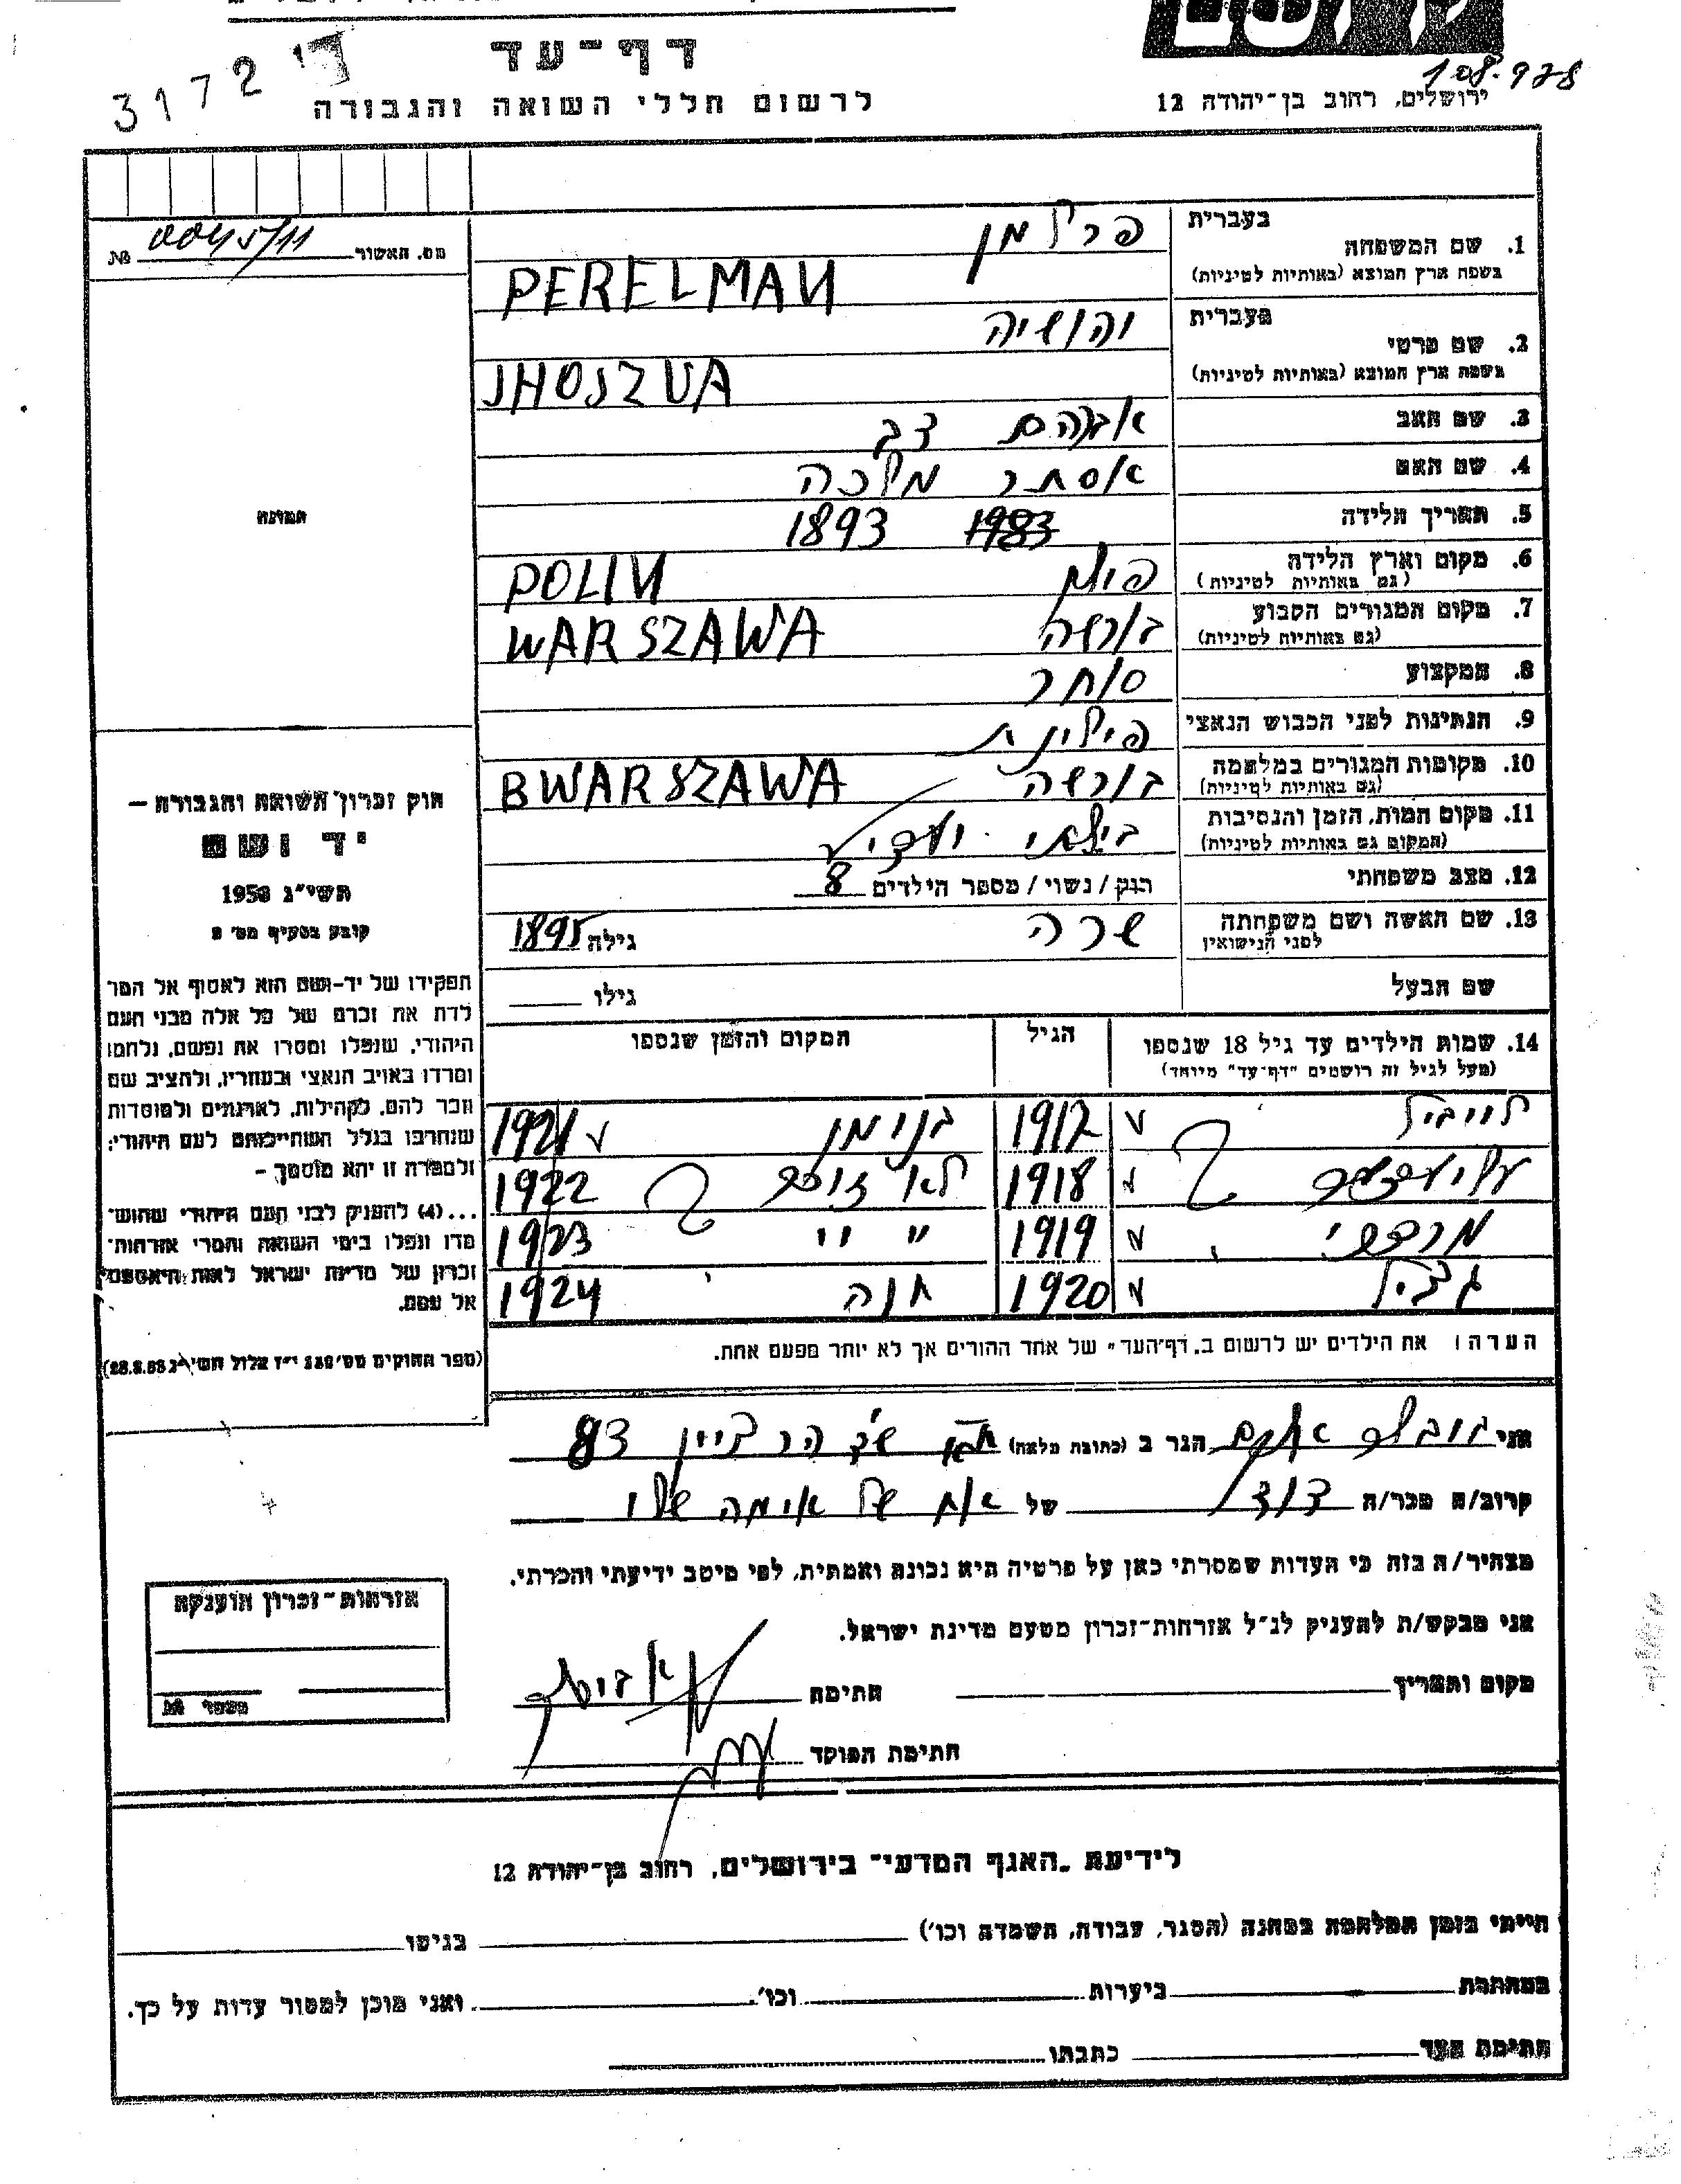 דף-עד
לרשום חללי השואה והגבורה
ירושלים, רחוב בן-יהודה 12
3172
108.978
מס. האשור 0045/11
בעברית פרלמן
1. שם המשפחה
בשפת ארץ המוצא (באותיות לטיניות) PERELMAN
בעברית
2. שם פרטי
בשפת ארץ המוצא (באותיות לטיניות) JHOSZUA
3. שם האב אברהם צבי
4. שם האם אסתר מלכה
5. תאריך הלידה 1983 1893
6. מקום וארץ הלידה פולין POLIN
(גם באותיות לטיניות)
7. מקום המגורים הקבוע ורשה WARSZAWA
(גם באותיות לטיניות)
8. המקצוע סוחר
9. הנתינות לפני הכבוש הנאצי
10. מקומות המגורים במלחמה בורשה BWARSZAWA
(גם באותיות לטיניות)
11. מקום המות, הזמן והנסיבות בילתי
(המקום גם באותיות לטיניות)
12. מצב משפחתי רוק / נשוי / מספר הילדים 8
13. שם האשה ושם משפחתה שרה גילה 1895
לפני הנישואין
שם הבעל גילו
תמונה
חוק זכרון השואה והגבורה –
יד ושם
תשי"ג 1953
קובע בסעיף מס' 2
תפקידו של יד-ושם הוא לאסוף אל המו
לדת את זכרם של כל אלה מבני העם
היהודי, שנפלו ומסרו את נפשם, נלחמו
ומרדו באויב הנאצי ובעוזריו, ולהציב שם
וזכר להם, לקהילות, לארגונים ולמוסדות
שנחרבו בגלל השתייכותם לעם היהודי;
ולמטרה זו יהא מוסמך –
...(4) להעניק לבני העם היהודי שהוש־
מדו ונפלו בימי השואה והמרי אזרחות־
זכרון של מדינת ישראל לאות היאספם
אל עמם.
(ספר החוקים מס' 132 י"ז אלול תשי"ג 28.8.53)
14. שמות הילדים עד גיל 18 שנספו הגיל המקום והזמן שנספו
(מעל לגיל זה רושמים "דף-עד" מיוחד)
לייביל 1917 בנימן 1921
1918 לא זוכר 1922
מרדכי 1919 " " 1923
געציל 1920 חנה 1924
הערה: את הילדים יש לרשום ב"דף-העד" של אחד ההורים אך לא יותר מפעם אחת.
אני הגר ב (כתובת מלאה) הר ציון 83
קרוב/ה מכר/ה דוד של אח של אימה שלי
מצהיר/ה בזה כי העדות שמסרתי כאן על פרטיה היא נכונה ואמתית, לפי מיטב ידיעתי והכרתי.
אני מבקש/ת להעניק לנ"ל אזרחות-זכרון מטעם מדינת ישראל.
מקום ותאריך חתימה
חתימת הפוקד
אזרחות-זכרון הוענקה
מספר
לידיעת "האגף המדעי" בירושלים, רחוב בן-יהודה 12
הייתי בזמן המלחמה במחנה (הסגר, עבודה, השמדה וכו') בגיטו
במחתרת ביערות וכו'. ואני מוכן למסור עדות על כך.
חתימת העד כתבתו